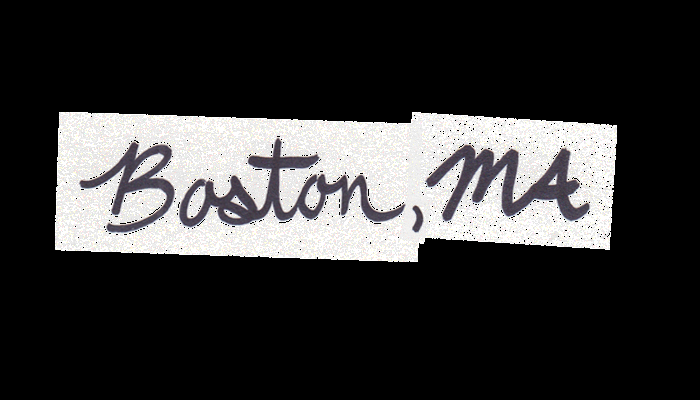 Boston, MA